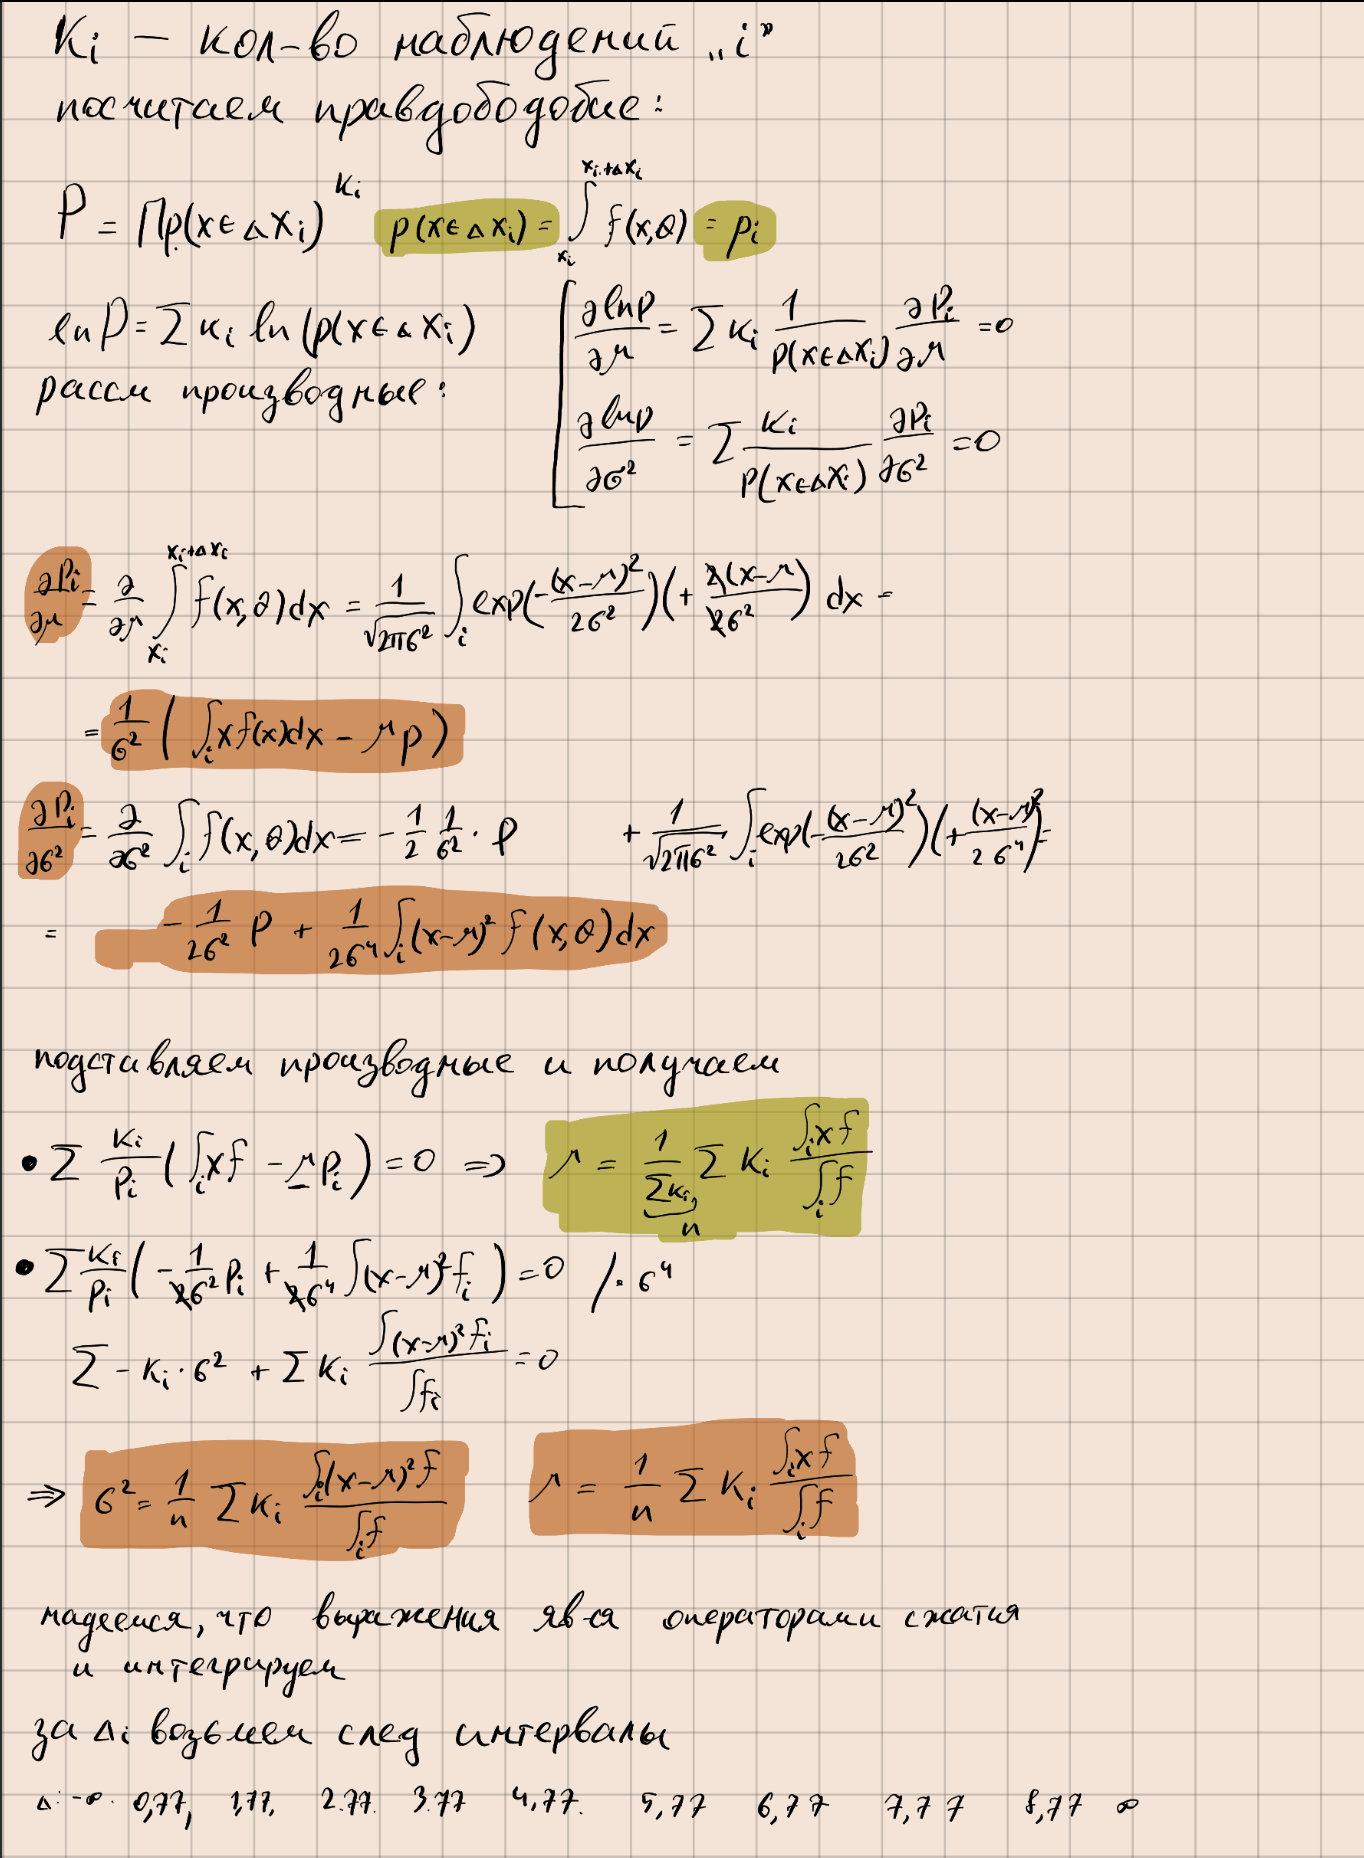 Ki — кол-во наблюдений „i”
посчитаем правдободобие:
P = Πp(x∈ΔXi)^Ki p(x∈Δxi) = ∫_{xi}^{xi+Δxi} f(x,θ) = pi
ln P = Σ Ki ln(p(x∈ΔXi)
рассм производные:
∂lnP/∂μ = Σ Ki 1/P(x∈ΔXi) ∂Pi/∂μ = 0
∂lnp/∂σ² = Σ Ki/P(x∈ΔXi) ∂Pi/∂σ² = 0
∂Pi/∂μ = ∂/∂μ ∫_{xi}^{xi+Δxi} f(x,θ)dx = 1/√2πσ² ∫_i exp(-(x-μ)²/2σ²)(+2(x-μ)/2σ²) dx =
= 1/σ² ( ∫_i x f(x)dx - μp)
∂Pi/∂σ² = ∂/∂σ² ∫_i f(x,θ)dx = - 1/2 1/σ² · P + 1/√2πσ² ∫_i exp(-(x-μ)²/2σ²)(+(x-μ)²/2σ⁴) =
= -1/2σ² P + 1/2σ⁴ ∫_i (x-μ)² f(x,θ)dx
подставляем производные и получаем
• Σ Ki/Pi (∫_i xf - μPi) = 0 => μ = 1/ΣKi Σ Ki ∫_i xf / ∫_i f
n
• Σ Ki/Pi (-1/2σ² Pi + 1/2σ⁴ ∫(x-μ)² fi) = 0 /· σ⁴
Σ - Ki · σ² + Σ Ki ∫(x-μ)² fi / ∫fi = 0
=> σ² = 1/n Σ Ki ∫_i (x-μ)² f / ∫_i f μ = 1/n Σ Ki ∫_i xf / ∫_i f
надеемся, что выражения яв-ся операторами сжатия
и интегрируем
за Δi возьмем след интервалы
Δ: -∞. 0,77, 1,77, 2.77. 3.77 4,77. 5,77 6,77 7,77 8,77 ∞